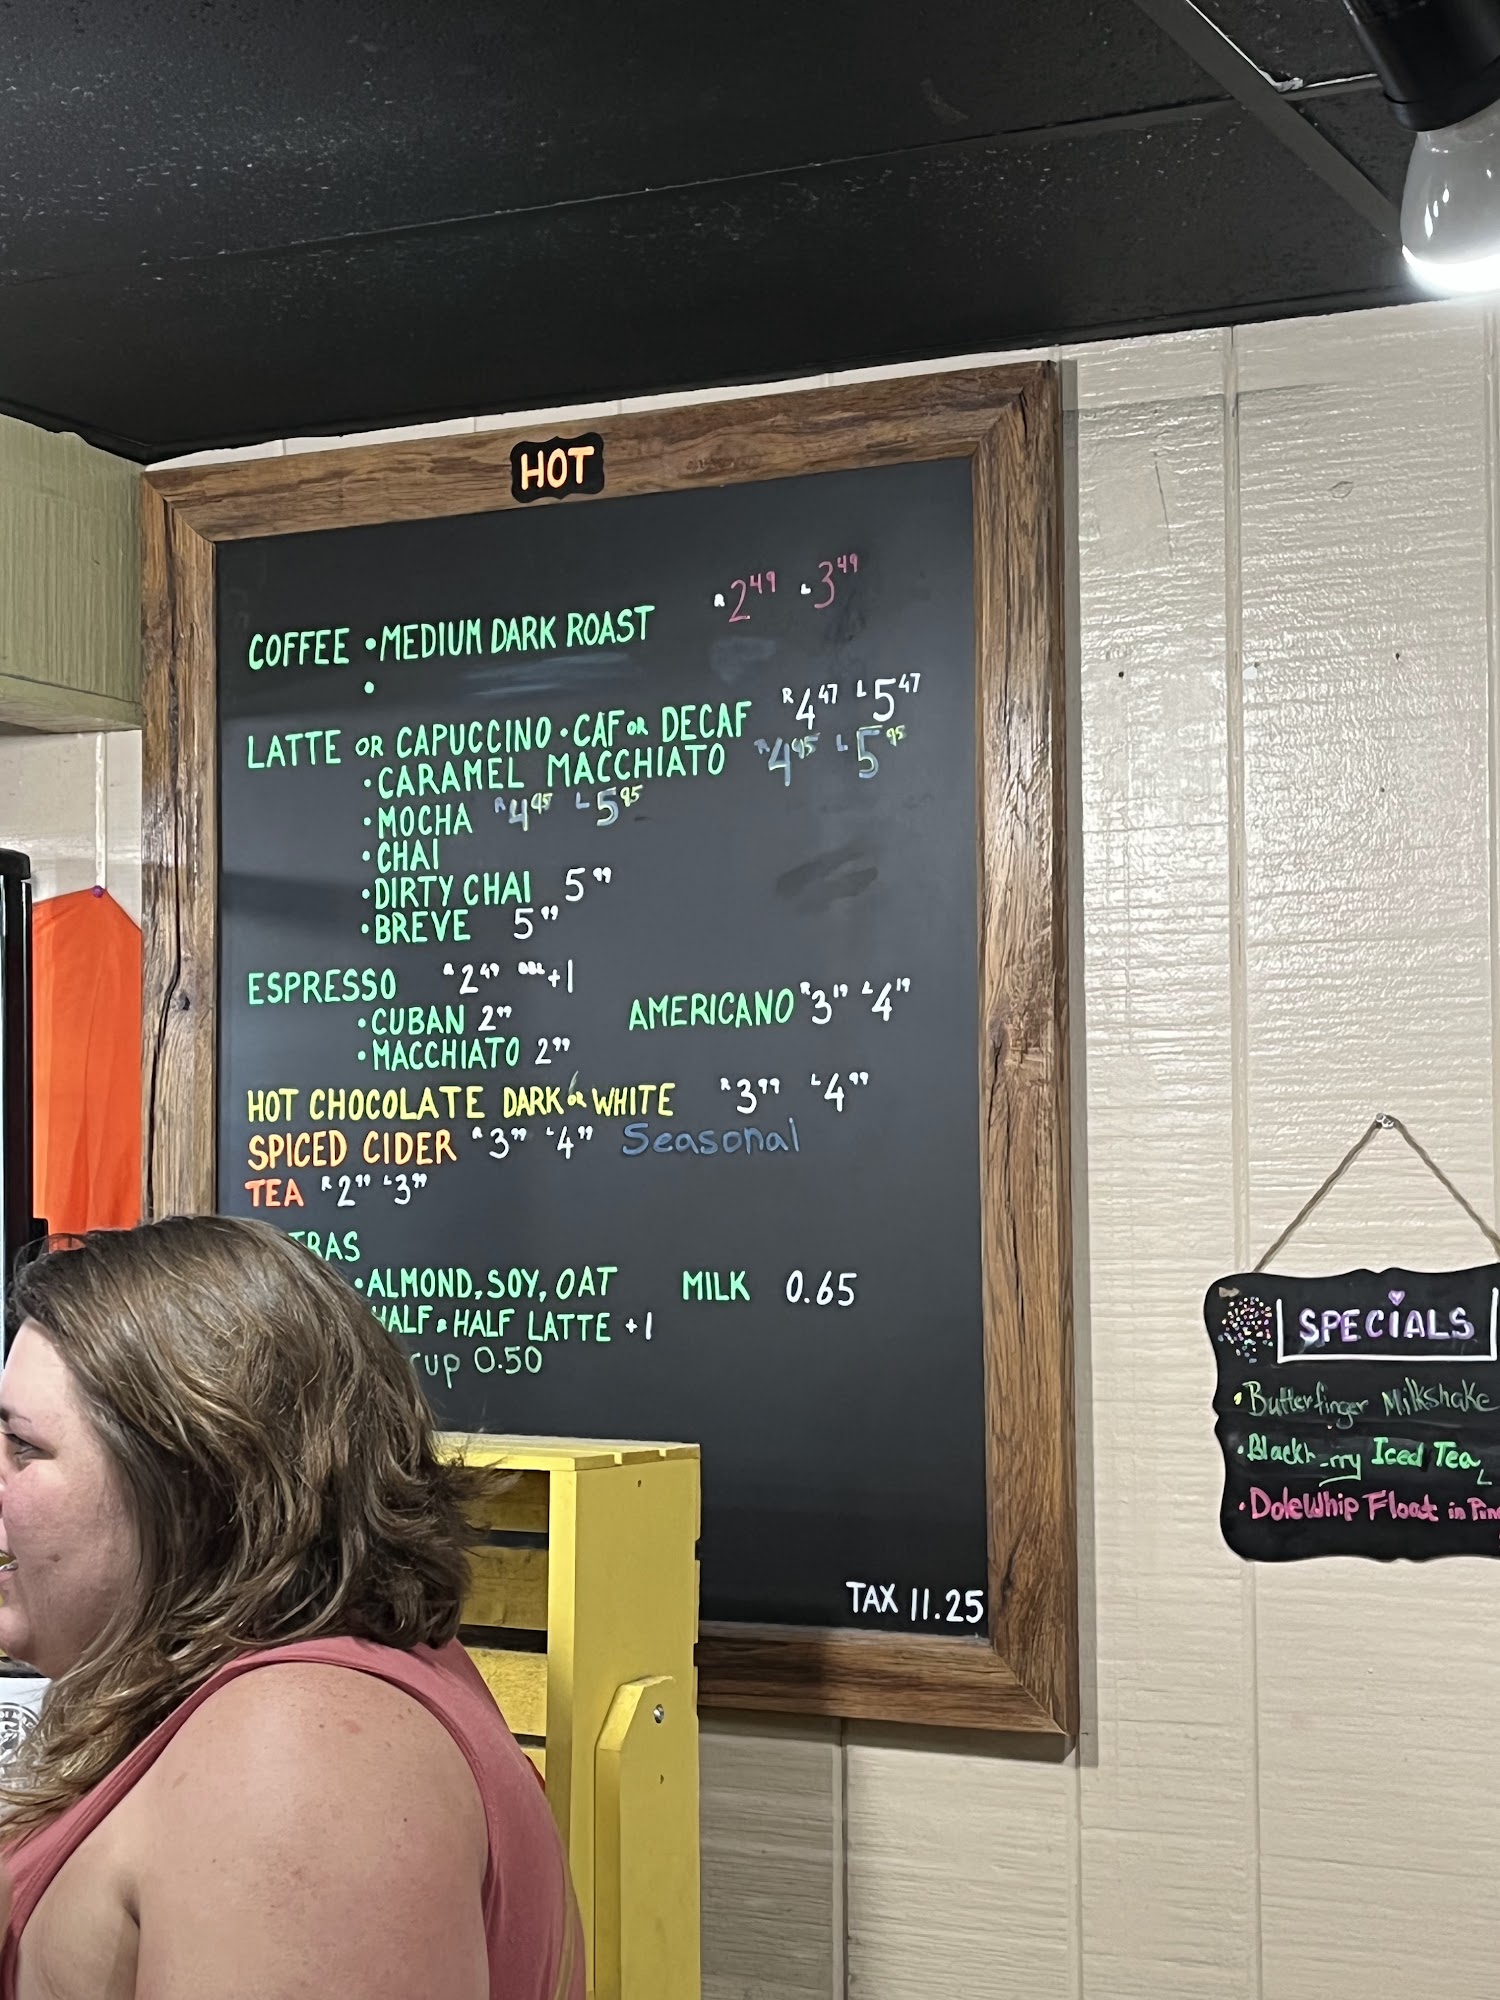 HOT
COFFEE • MEDIUM DARK ROAST R 2 49 L 3 49
•
LATTE OR CAPUCCINO • CAF OR DECAF R 4 47 L 5 47
• CARAMEL MACCHIATO R 4 95 L 5 95
• MOCHA R 4 95 L 5 95
• CHAI
• DIRTY CHAI 5 99
• BREVE 5 99
ESPRESSO R 2 49 DBL +1
• CUBAN 2 99
• MACCHIATO 2 99
AMERICANO R 3 19 L 4 19
HOT CHOCOLATE DARK OR WHITE R 3 99 L 4 99
SPICED CIDER R 3 99 L 4 99 Seasonal
TEA R 2 99 L 3 99
TRAS
• ALMOND, SOY, OAT MILK 0.65
HALF & HALF LATTE +1
rup 0.50
TAX 11.25
SPECIALS
• Butterfinger Milkshake
• Iced Tea
• DoleWhip Float in